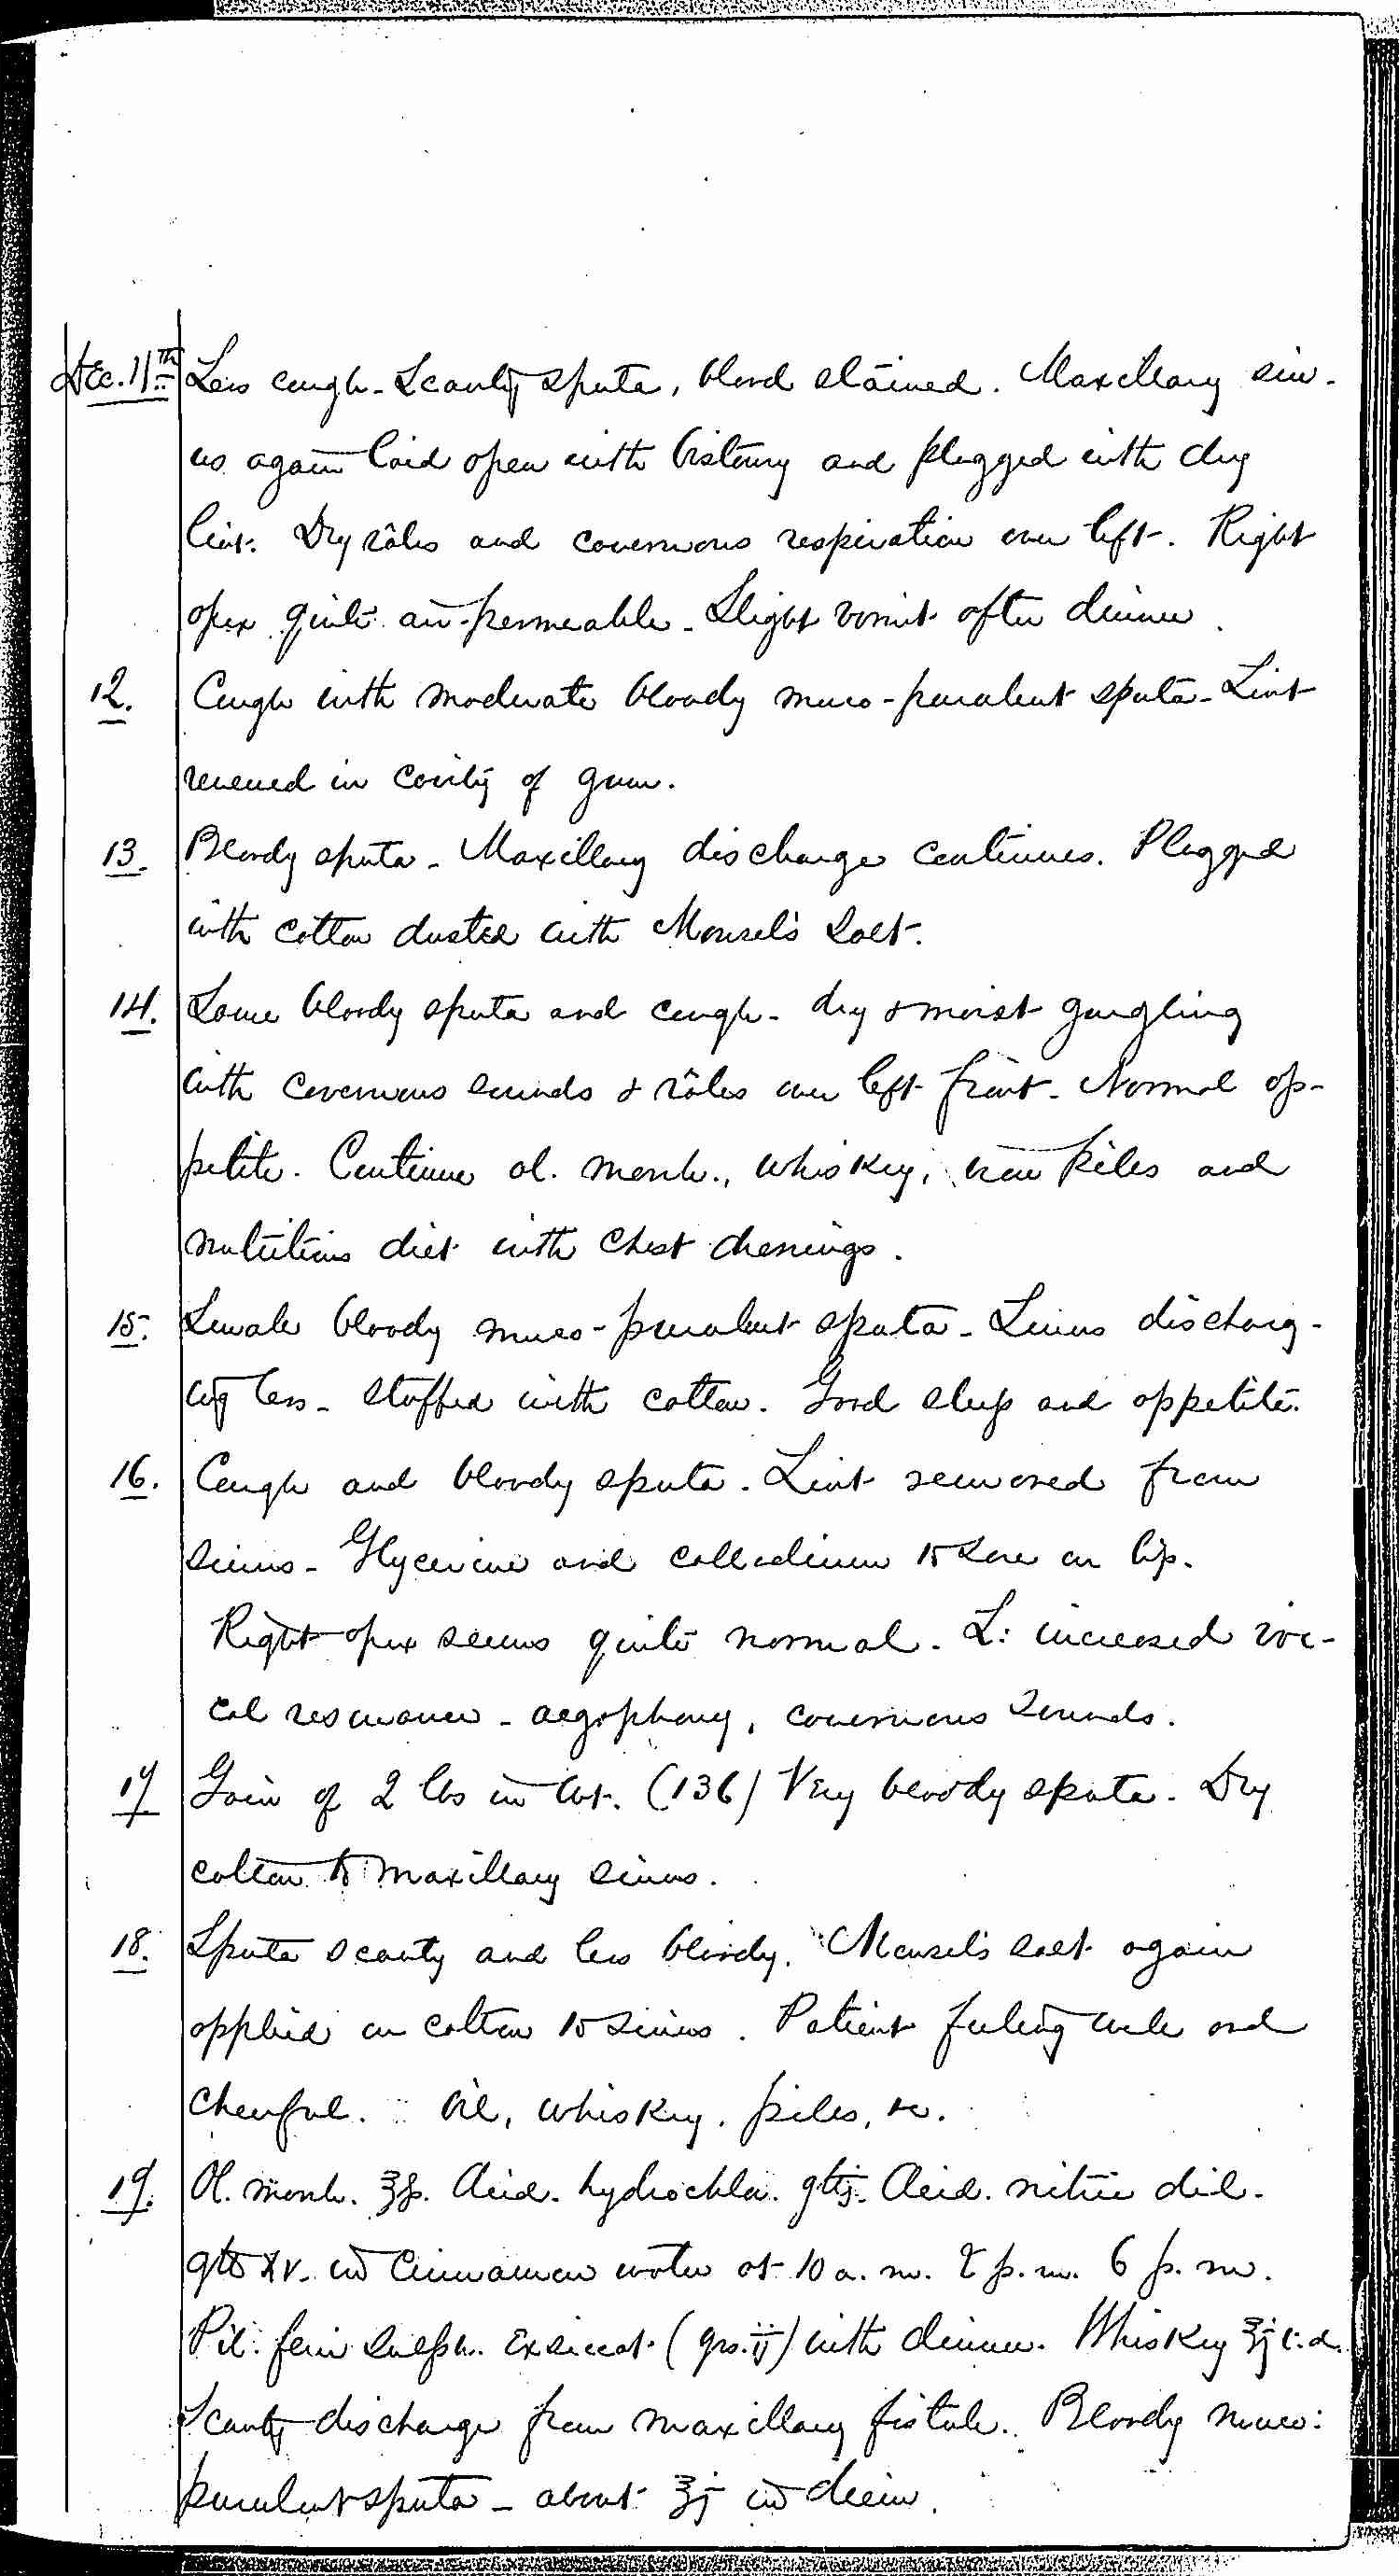 Dec. 11th Less cough - Scanty sputa, blood stained. Maxillary sin-
us again laid open with bistoury and plugged with dry
lint. Dry râles and cavernous respiration over left. Right
apex quite air-permeable - Slight vomit after dinner.
12. Cough with moderate bloody muco-purulent sputa - Lint
renewed in cavity of gum.
13. Bloody sputa - Maxillary discharge continues. Plugged
with cotton dusted with Monsel's Salt.
14. Some bloody sputa and cough - dry & moist gurgling
with cavernous sounds & râles over left front - Normal ap-
petite. Continue ol. morrh., whiskey, iron pills and
nutritious diet with chest dressings.
15. Small bloody muco-purulent sputa - Sinus discharg-
ing less - stuffed with cotton. Good sleep and appetite.
16. Cough and bloody sputa. Lint removed from
sinus - Glycerine and collodium to sore on lip.
Right apex seems quite normal. L: increased vo-
cal resonance - aegophony, cavernous sounds.
17 Gain of 2 lbs in wt. (136) Very bloody sputa - Dry
cotton to maxillary sinus.
18. Sputa scanty and less bloody. Monsel's salt again
applied on cotton to sinus. Patient feeling well and
cheerful. Oil, whiskey, pills, &c.
19. Ol. morrh. ℥ß. Acid. hydrochlor. gttj. Acid. nitric dil.
gtts xv. in Cinnamon water at 10 a.m. 2 p.m. 6 p.m.
Pil. ferri Sulph. Exsiccat. (grs. ij) with dinner. Whiskey ℥j t.d.
Scanty discharge from maxillary fistula. Bloody muco:
purulent sputa - about ℥j in diem.